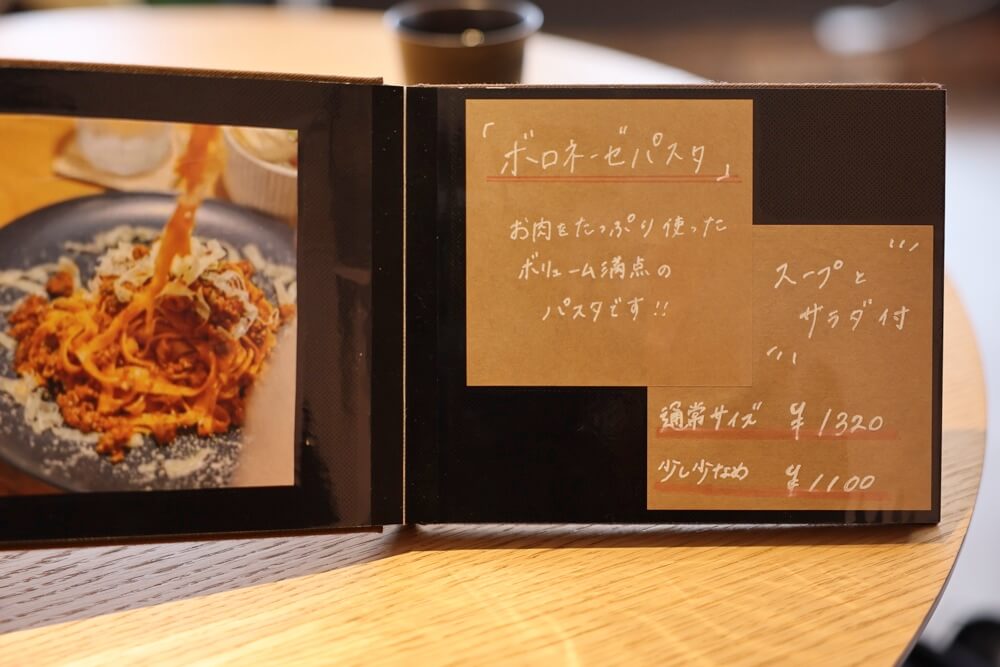 「ボロネーゼパスタ」
お肉をたっぷり使った
ボリューム満点の
パスタです!!
スープと
サラダ付
通常サイズ ¥1320
少し少なめ ¥1100